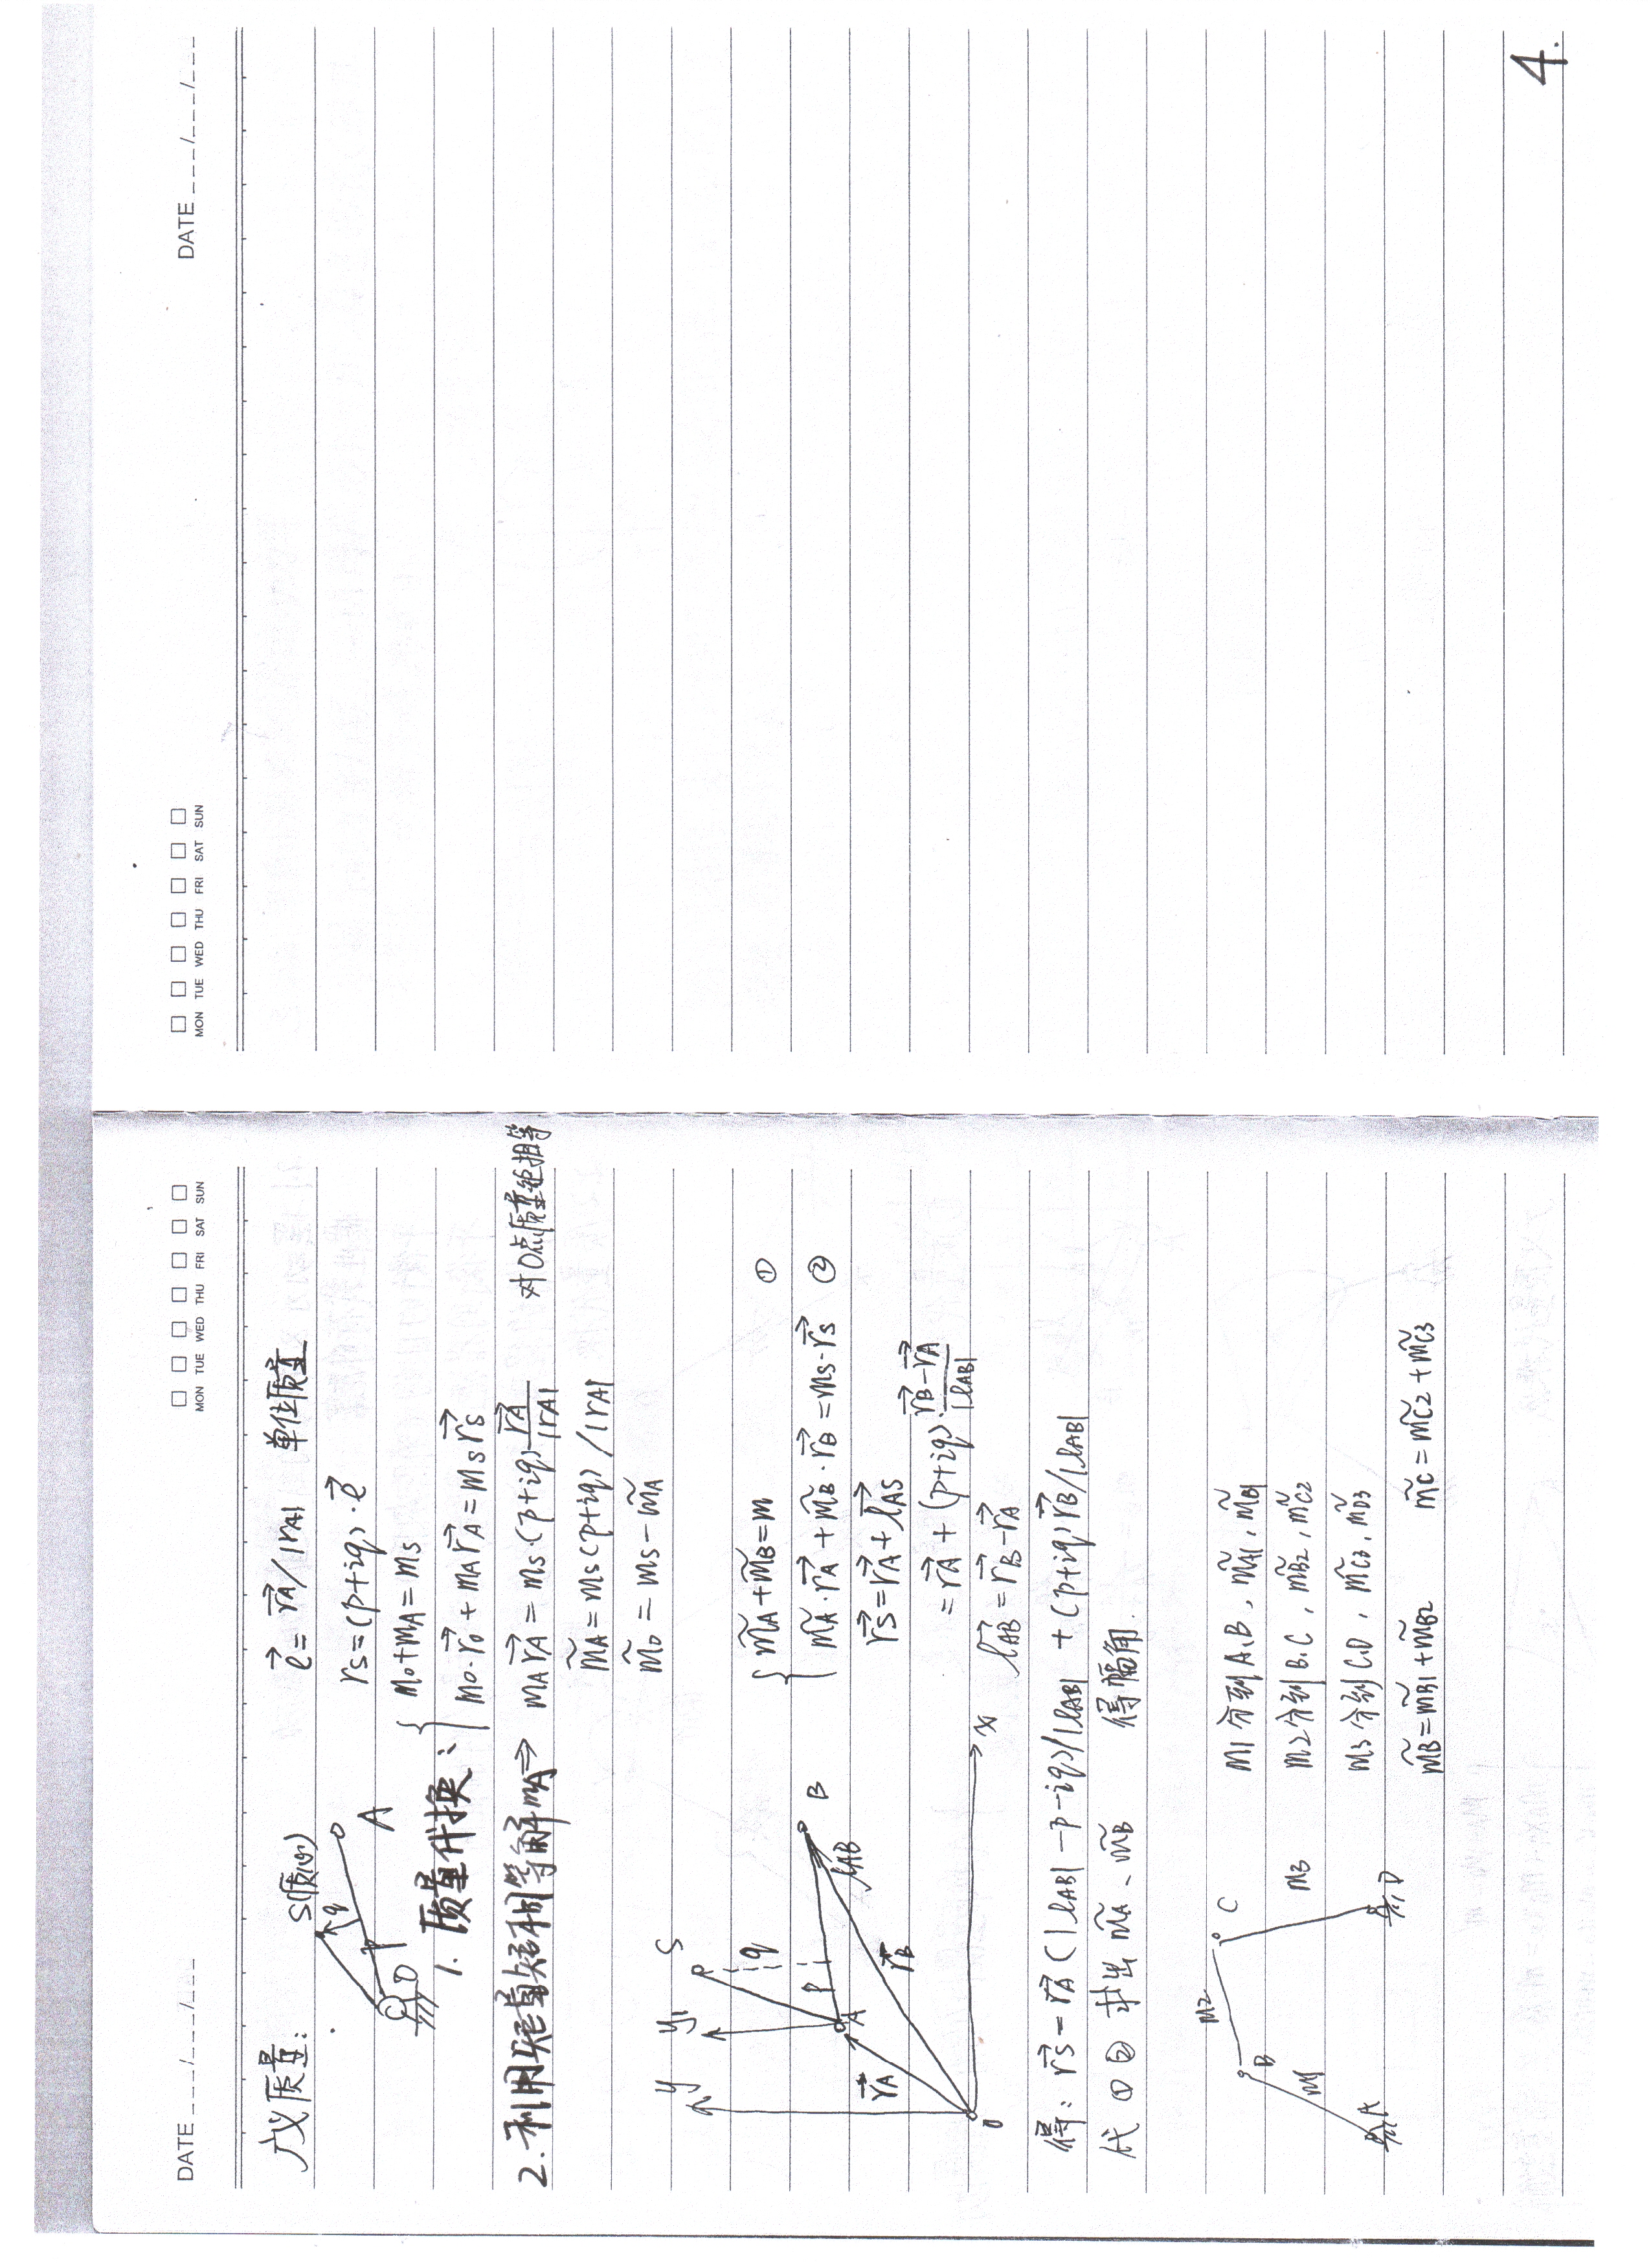 DATE ___/___/___
MON TUE WED THU FRI SAT SUN
广义质量:
S(质心)
q
P
A
O
e⃗ = r⃗A/|rA| 单位质量
rs=(p+iq)·e⃗
1. 质量代换:
{ mo+mA=ms
mo·r⃗o+mA r⃗A=ms r⃗s
2.利用矢量矩相等解mA⇒ mA r⃗A=ms·(p+iq) r⃗A/|rA| 对O点质量矩相等
m̃A=ms(p+iq)/|rA|
m̃o=ms-m̃A
y
y1
S
q
P
A
B
lAB
r⃗A
r⃗B
O
x
{ m̃A+m̃B=m ①
m̃A·r⃗A+m̃B·r⃗B=ms·r⃗s ②
r⃗s=r⃗A+l⃗AS
=r⃗A+(p+iq)·(r⃗B-r⃗A)/|lAB|
l⃗AB=r⃗B-r⃗A
得: r⃗s=r⃗A(|lAB|-p-iq)/|lAB|+(p+iq)r⃗B/|lAB|
代①② 求出m̃A、m̃B 得幅角.
m2
C
B
m1
A
m3
D
m1分到A.B, m̃A1, m̃B1
m2分到B.C, m̃B2, m̃C2
m3分到C.D, m̃C3, m̃D3
m̃B=m̃B1+m̃B2 m̃C=m̃C2+m̃C3
MON TUE WED THU FRI SAT SUN
DATE ___/___/___
4.